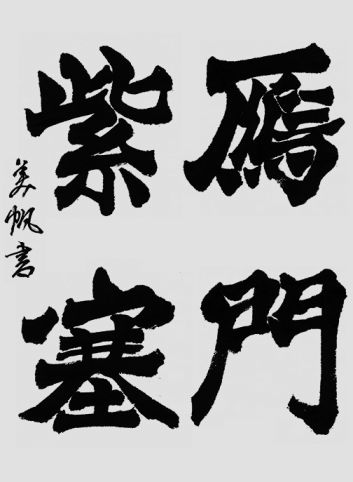 鴈門
紫塞
美帆書